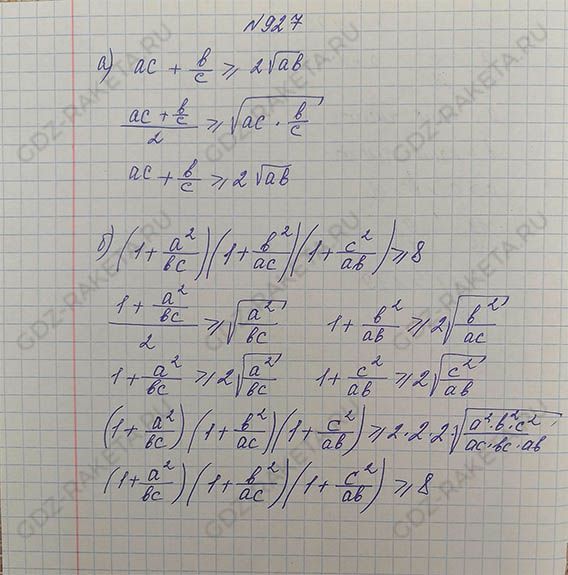 №927
а) ac + b/c ⩾ 2√ab
(ac + b/c)/2 ⩾ √(ac · b/c)
ac + b/c ⩾ 2√ab
б) (1 + a²/bc)(1 + b²/ac)(1 + c²/ab) ⩾ 8
(1 + a²/bc)/2 ⩾ √(a²/bc) 1 + b²/ab ⩾ 2√(b²/ac)
1 + a²/bc ⩾ 2√(a²/bc) 1 + c²/ab ⩾ 2√(c²/ab)
(1 + a²/bc)(1 + b²/ac)(1 + c²/ab) ⩾ 2·2·2·√(a²·b²·c²/ac·bc·ab)
(1 + a²/bc)(1 + b²/ac)(1 + c²/ab) ⩾ 8
GDZ-RAKETA.RU